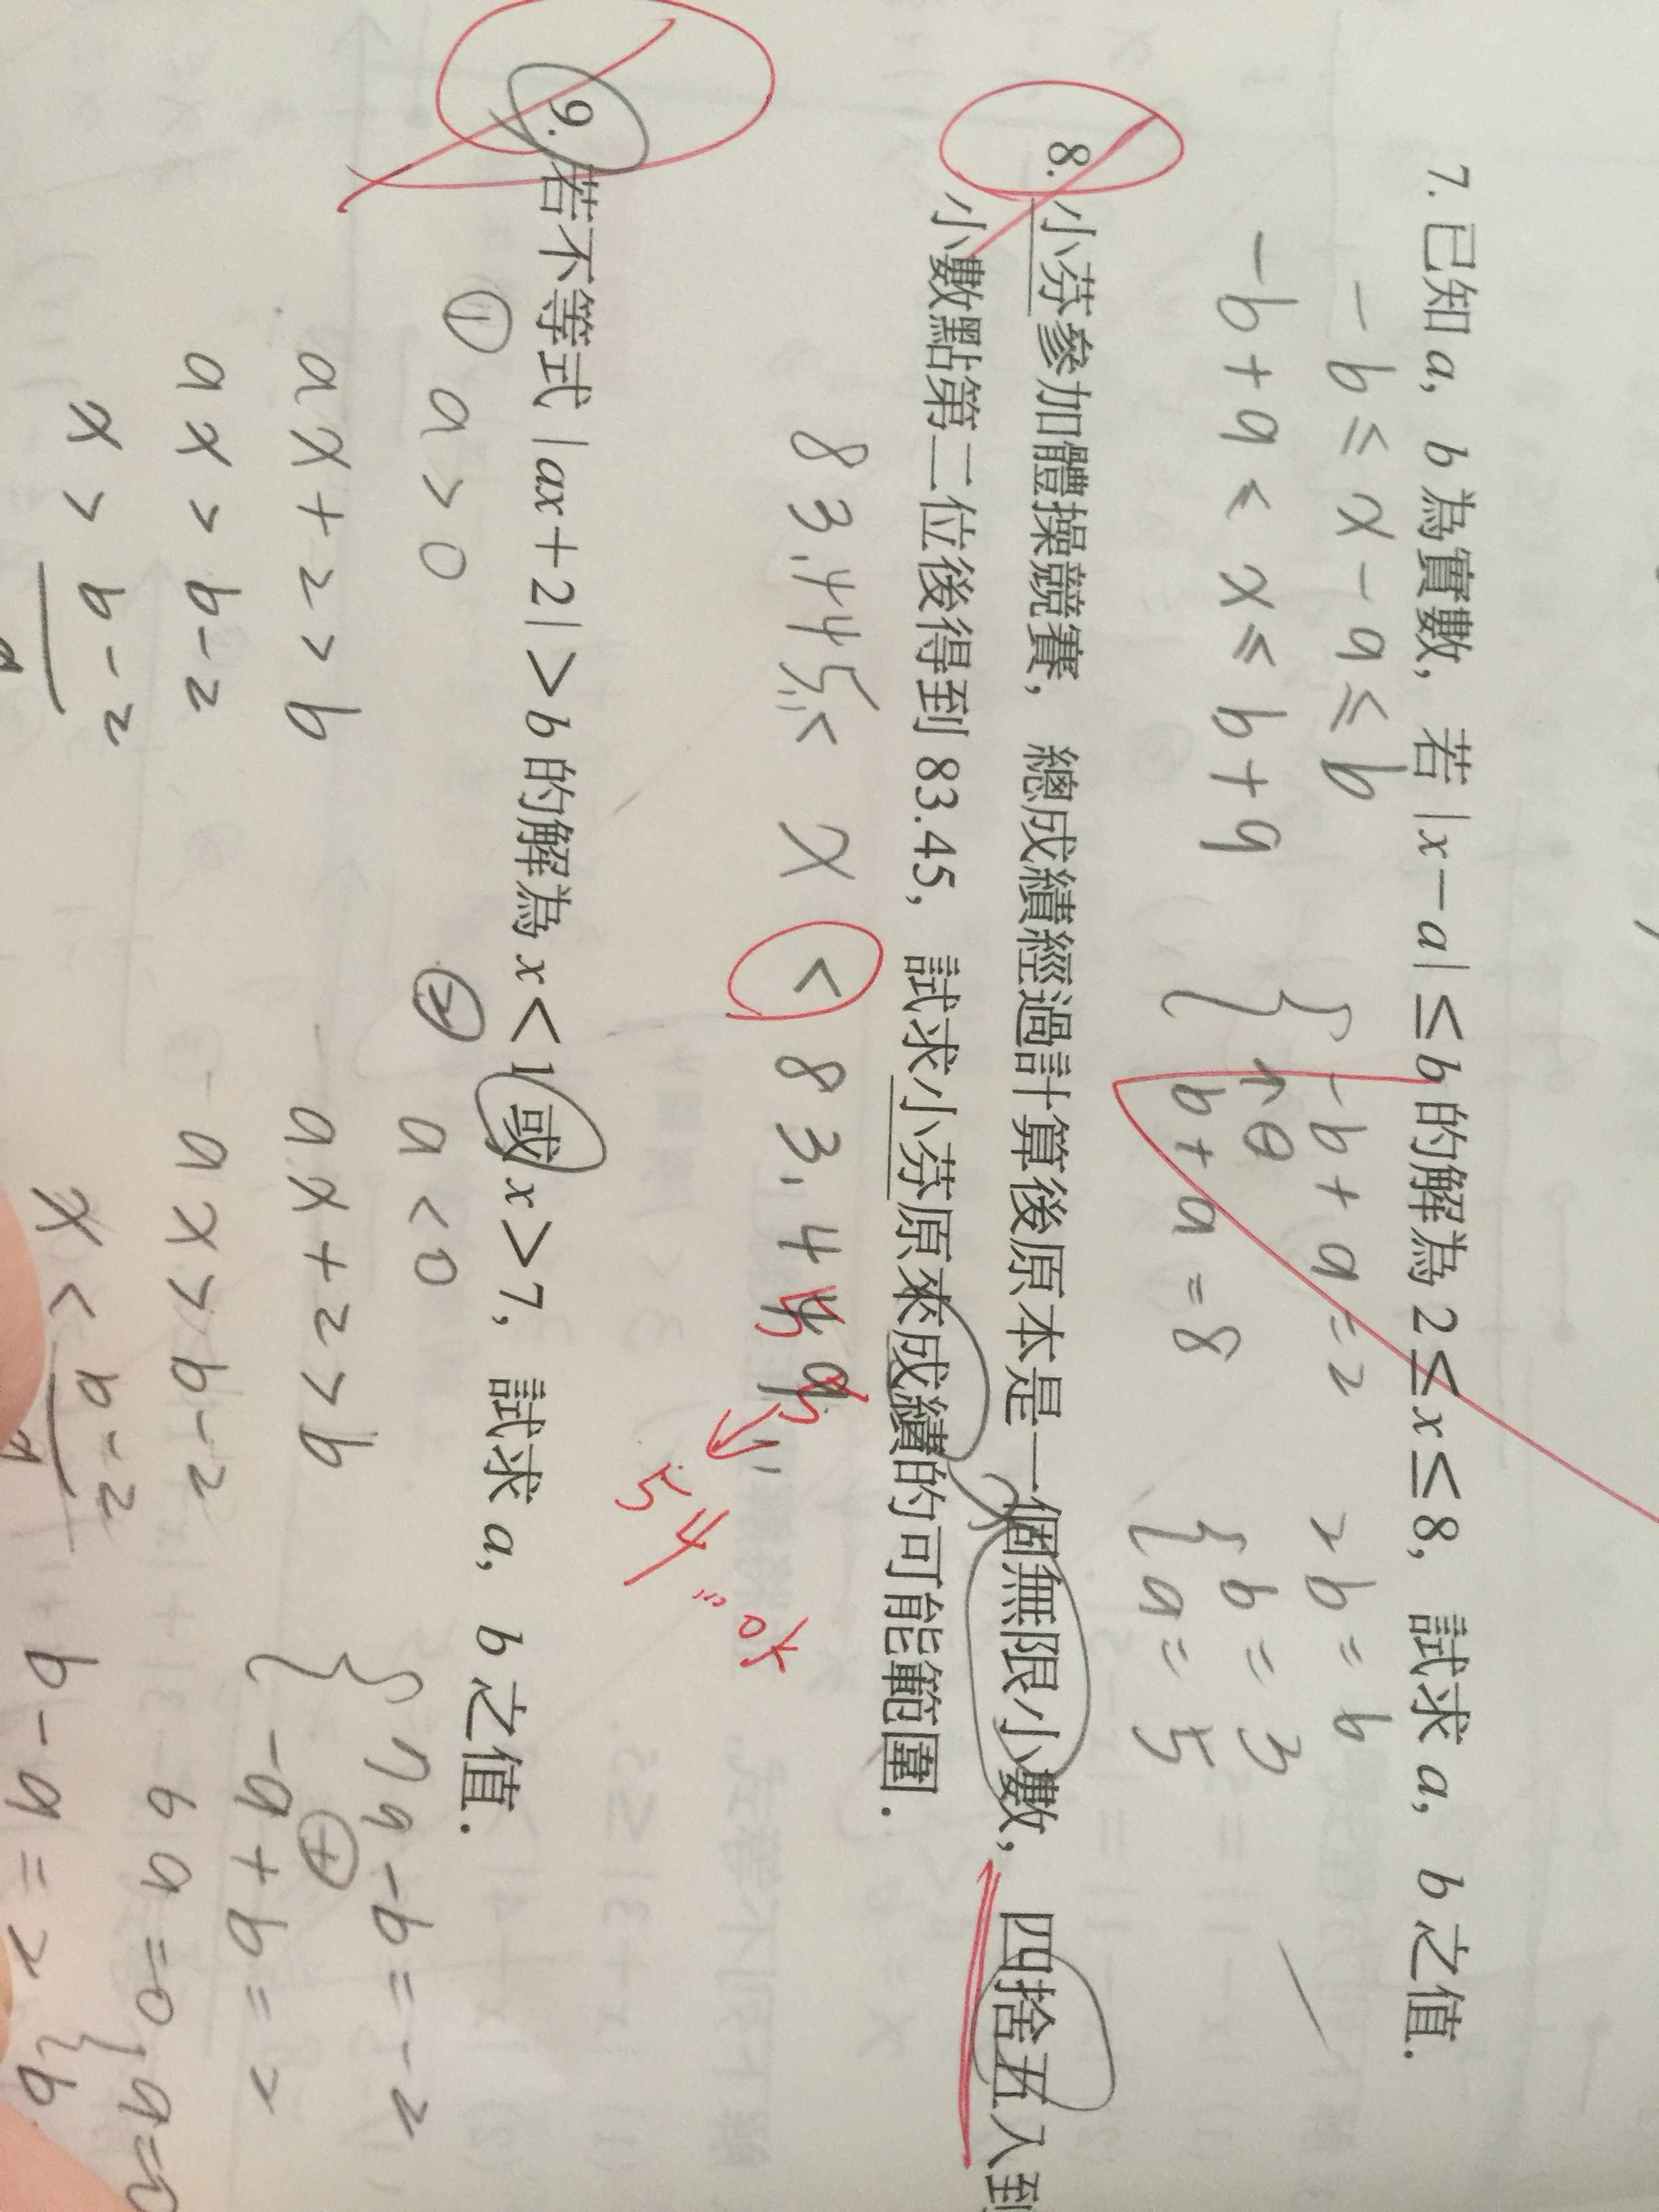 7. 已知 a, b 為實數, 若 |x-a| ≤ b 的解為 2 ≤ x ≤ 8, 試求 a, b 之值.
-b ≤ x-a ≤ b
-b+a < x ≤ b+a
-b+a=2
b+a=8
2b=6
b=3
a=5
8. 小芬參加體操競賽, 總成績經過計算後原本是一個無限小數, 四捨五入到
小數點第二位後得到 83.45, 試求小芬原來成績的可能範圍.
83.445 < x < 83.45
54 ... ok
9. 若不等式 |ax+2| > b 的解為 x < 1 或 x > 7, 試求 a, b 之值.
① a>0
ax+2<b
ax<b-2
x<b-2
② a<0
ax+2<b
ax<b-2
x>b-2
7a-b=-2
-a+b=2
6a=0
b-a=2